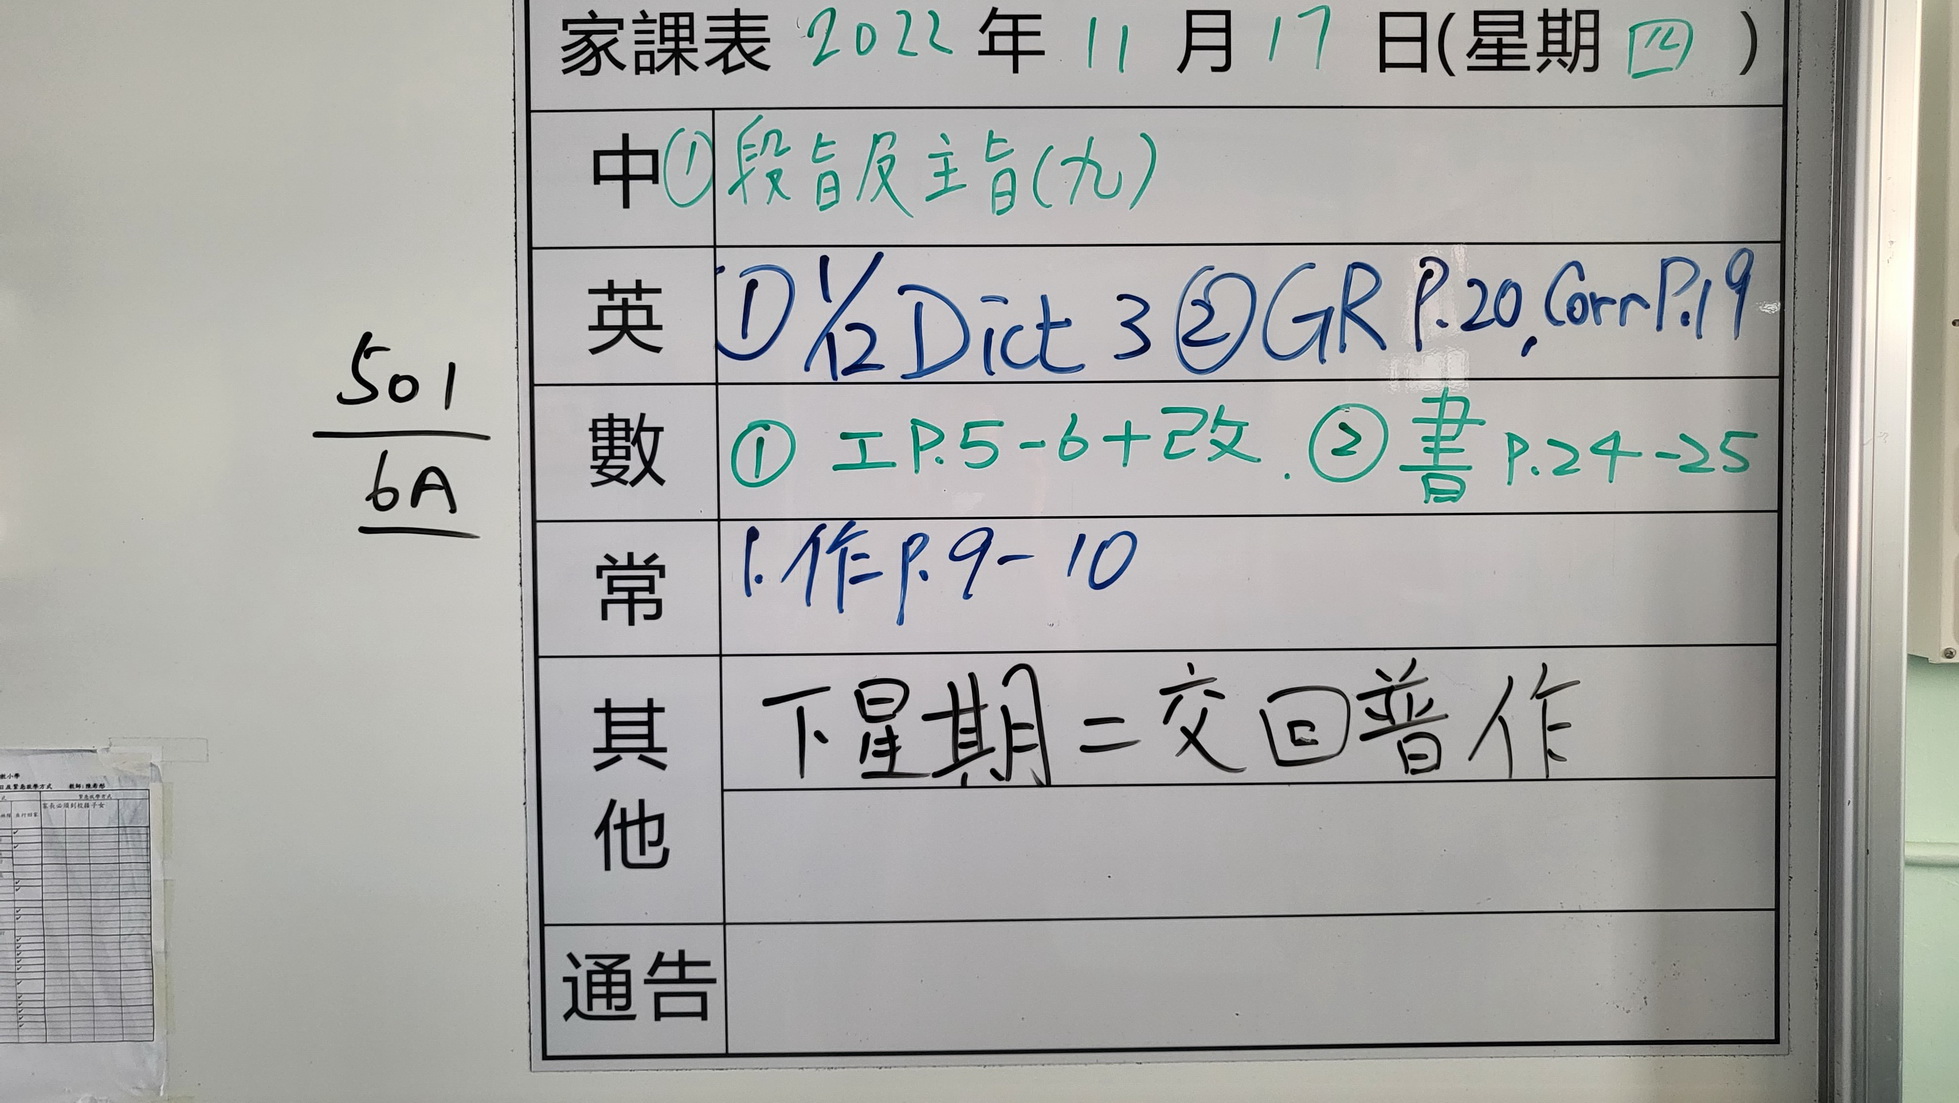 家課表 2022 年 11 月 17 日(星期 四 )
中 ① 段旨及主旨(九)
英 ① 1/12 Dict 3 ② GR P.20, Corr P.19
501
6A
數 ① 工 P.5-6+改. ② 書 P.24-25
常 1. 作 P.9-10
其他 下星期二交回普作
通告